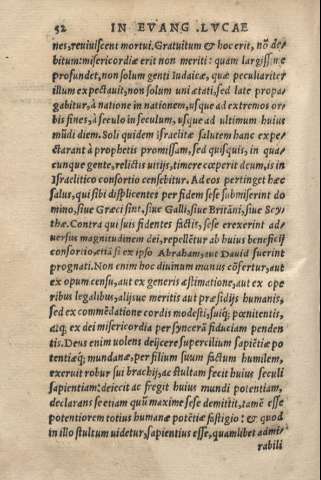 52 IN EVANG .LVCAE
nes, reuiuiscent mortui. Gratuitum & hoc erit, nō de-
bitum: misericordiæ erit non meriti: quam largissime
profundet, non solum genti Iudaicæ, quæ peculiariter
illum expectauit, non solum uni ætati, sed late propa-
gabitur, à natione in nationem, usque ad extremos or-
bis fines, à seculo in seculum, usque ad ultimum huius
mūdi diem. Soli quidem israelitæ salutem hanc expe-
ctarant à prophetis promissam, sed quisquis, in qua-
cunque gente, relictis uitijs, timere cœperit deum, is in
Israelitico consortio censebitur. Ad eos pertinget hæc
salus, qui sibi displicentes per fidem sese submiserint do
mino, siue Græci sint, siue Galli, siue Britāni, siue Scy-
thæ. Contra qui suis fidentes factis, sese erexerint ad-
uersus magnitudinem dei, repelletur ab huius beneficij
consortio, etiā si ex ipso Abraham, aut Dauid fuerint
prognati. Non enim hoc diuinum munus cōfertur, aut
ex opum censu, aut ex generis æstimatione, aut ex ope
ribus legalibus, alijsue meritis aut præsidijs humanis,
sed ex commēdatione cordis modesti, suiq; pœnitentis,
atq; ex dei misericordia per synceră fiduciam penden
tis. Deus enim uolens deijcere supercilium sapiētiæ po
tentiæq; mundanæ, per filium suum factum humilem,
exeruit robur sui brachij, ac stultam fecit huius seculi
sapientiam: deiecit ac fregit huius mundi potentiam,
declarans se etiam quū maxime sese demittit, tamē esse
potentiorem totius humanæ potētiæ fastigio: & quod
in illo stultum uidetur, sapientius esse, quamlibet admi-
rabili